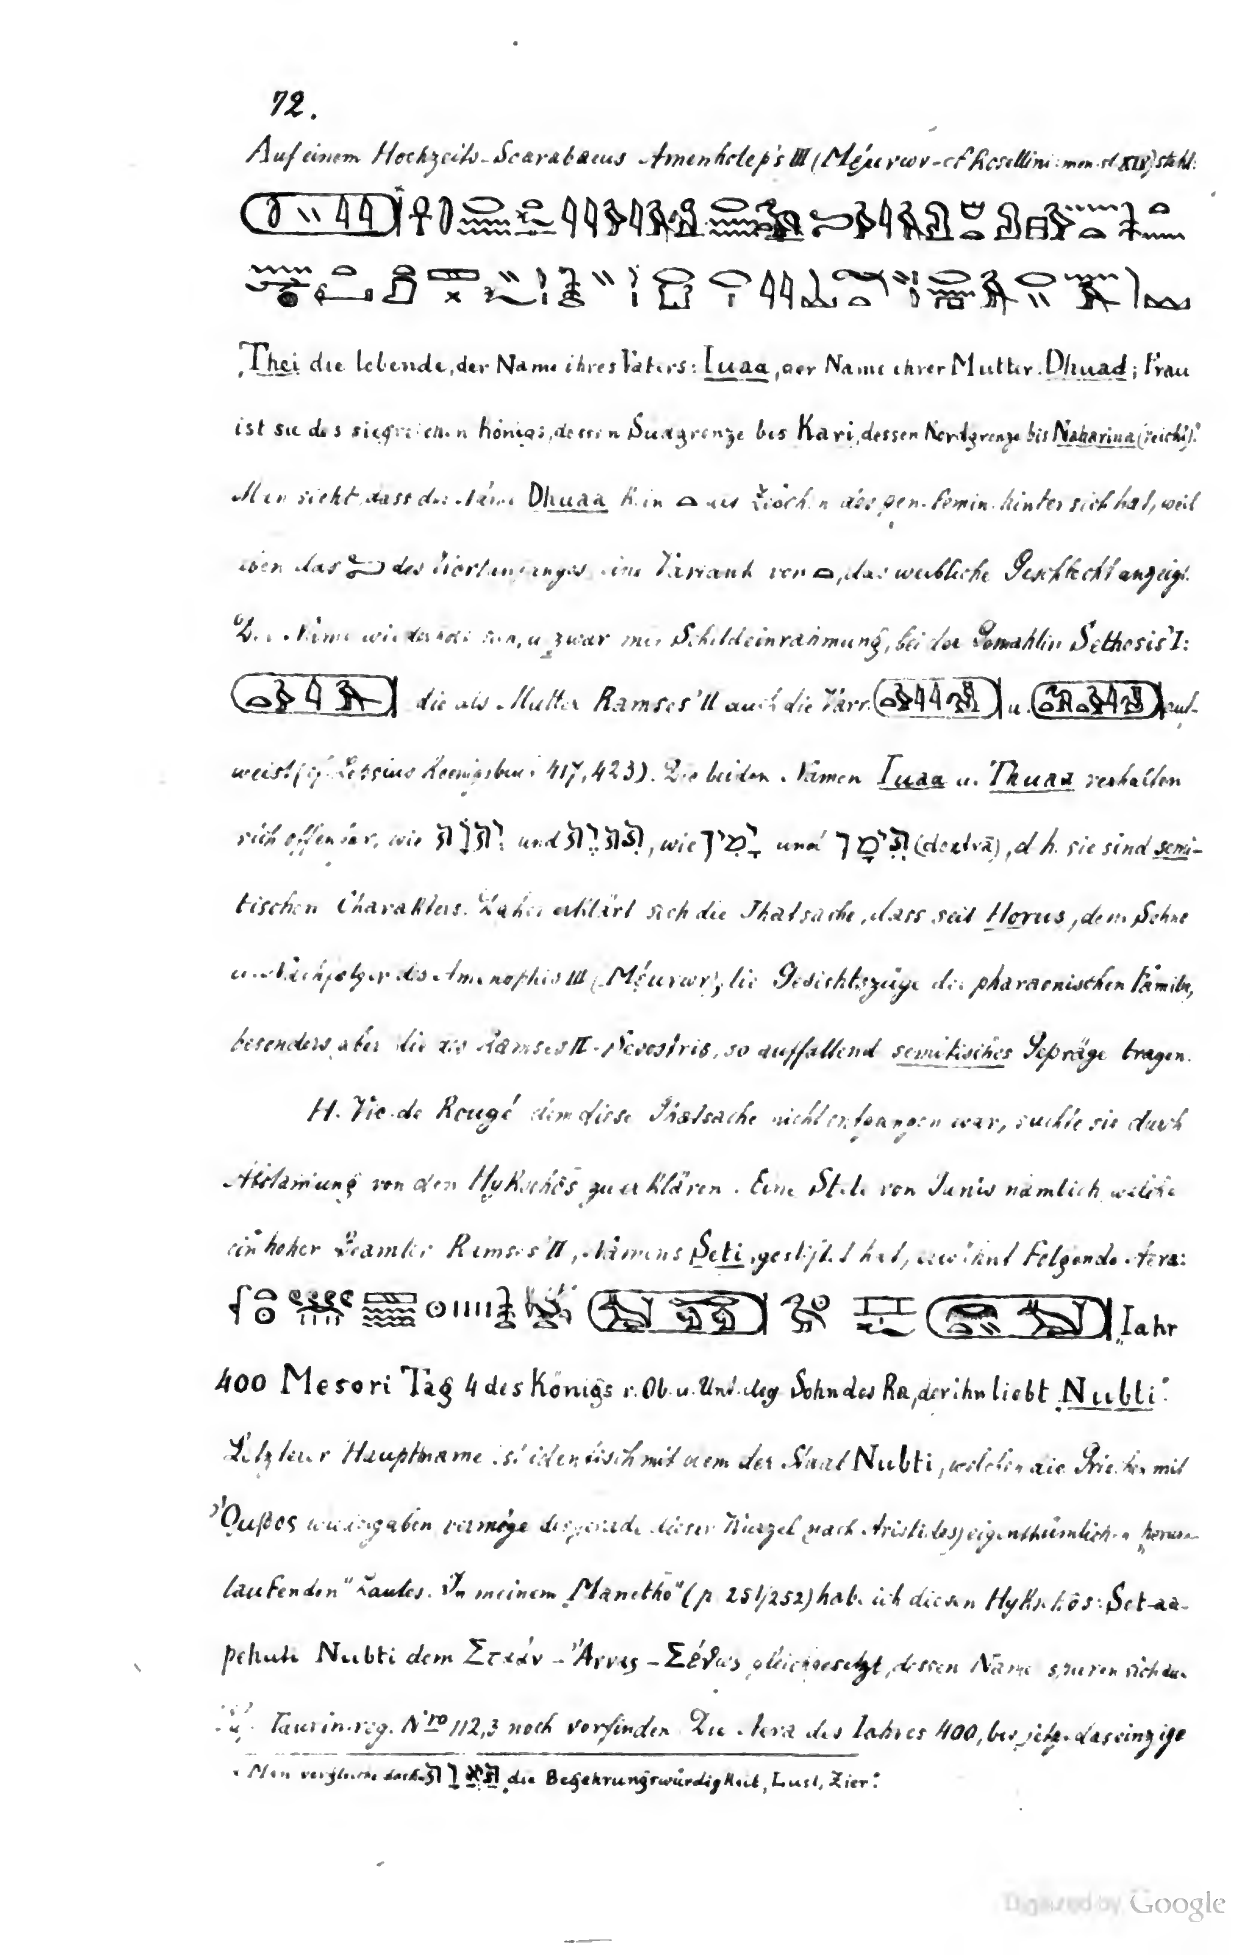 72.
Auf einem Hochzeits-Scarabaeus Amenhotep's III (Μέμνων - cf Rosellini: mon. st XLIV) steht:
„Thei die lebende, der Name ihres Vaters: Iuaa, der Name ihrer Mutter: Dhuad; Frau
ist sie des siegreichen Königs, dessen Südgrenze bis Kari, dessen Nordgrenze bis Naharina (reicht)."
Man sieht, dass der Name Dhuaa kein als Zeichen des gen. femin. hinter sich hat, weil
eben das des Wortanfanges, eine Variante von , das weibliche Geschlecht anzeigt.
Der Name wiederholt sich, u. zwar mit Schildeinrahmung, bei der Gemahlin Sethosis' I:
die als Mutter Ramses' II auch die Varr. u. auf-
weist (cf. Lepsius Koenigsbuch 417, 423). Die beiden Namen Iuaa u. Thuaa verhalten
sich offenbar, wie und , wie יָמִין und (dextra), d. h. sie sind semi-
tischen Charakters. Daher erklärt sich die Thatsache, dass seit Horus, dem Sohne
u. Nachfolger des Amenophis III (Μέμνων), die Gesichtszüge der pharaonischen Familie,
besonders aber die des Ramses II - Sesostris, so auffallend semitisches Gepräge tragen.
H. Vic. de Rougé dem diese Thatsache nicht entgangen war, suchte sie durch
Abstammung von den Hykschôs zu erklären. Eine Stele von Tanis nämlich, welche
ein hoher Beamter Ramses' II, Namens Seti, gestiftet hat, erwähnt folgende Aera:
„Iahr
400 Mesori Tag 4 des Königs v. Ob. u. Unt. Aeg. Sohn des Ra, der ihn liebt Nubti."
Letzterer Hauptname ist identisch mit dem der Stadt Nubti, welchen die Griechen mit
Ὄμβος wiedergaben, vermöge des gerade dieser Wurzel (nach Aristides) eigenthümlichen „herum-
laufenden" Lautes. In meinem „Manethó" (p. 251/252) habe ich diesen Hykschôs: Set-aa-
pehuti Nubti dem Σταάν - Ἄννας - Σέθως gleichgesetzt, dessen Namenspuren sich im
Pap. Taurin. reg. Nro 112,3 noch vorfinden. Die Aera des Iahres 400, bis jetzt das einzige
Man vergleiche doch תַּאֲוָה „die Begehrungswürdigkeit, Lust, Zier".
Digitized by Google